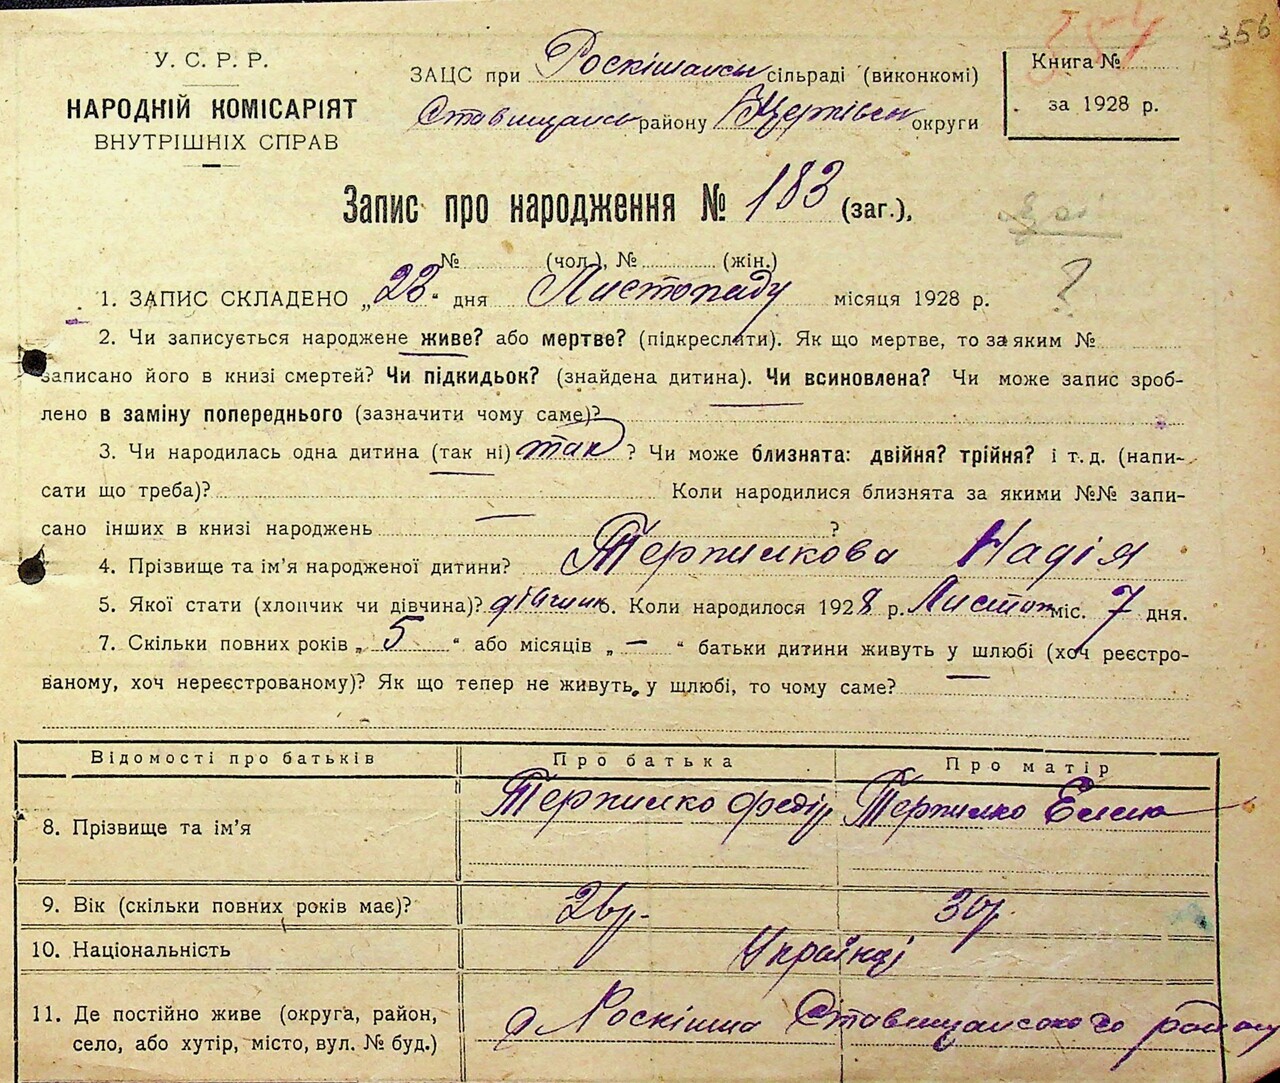 356
У. С. Р. Р.
НАРОДНІЙ КОМІСАРІЯТ
ВНУТРІШНІХ СПРАВ
ЗАЦС при Роскішанськ сільраді (виконкомі)
Ставищанськ району БЦерківськ округи
Книга №
за 1928 р.
Запис про народження № 183 (заг.),
№ (чол.), № (жін.)
1. ЗАПИС СКЛАДЕНО „23" дня Листопаду місяця 1928 р.
?
2. Чи записується народжене живе? або мертве? (підкреслити). Як що мертве, то за яким №
записано його в книзі смертей? Чи підкидьок? (знайдена дитина). Чи всиновлена? Чи може запис зроб-
лено в заміну попереднього (зазначити чому саме)?
3. Чи народилась одна дитина (так ні) так ? Чи може близнята: двійня? трійня? і т. д. (напи-
сати що треба)? Коли народилися близнята за якими №№ запи-
сано інших в книзі народжень — ?
4. Прізвище та ім'я народженої дитини? Терпилкова Надія
5. Якої стати (хлопчик чи дівчина)? дівчинк. Коли народилося 1928 р. Листоп міс. 7 дня.
7. Скільки повних років „ 5 " або місяців „ — " батьки дитини живуть у шлюбі (хоч реєстро-
ваному, хоч нереєстрованому)? Як що тепер не живуть у шлюбі, то чому саме?
Відомості про батьків Про батька Про матір
8. Прізвище та ім'я Терпилко Федір Терпилко Елена
9. Вік (скільки повних років має)? 26р. 30р.
10. Національність Українці
11. Де постійно живе (округа, район,
село, або хутір, місто, вул. № буд.) с Роскішна Ставищанського району